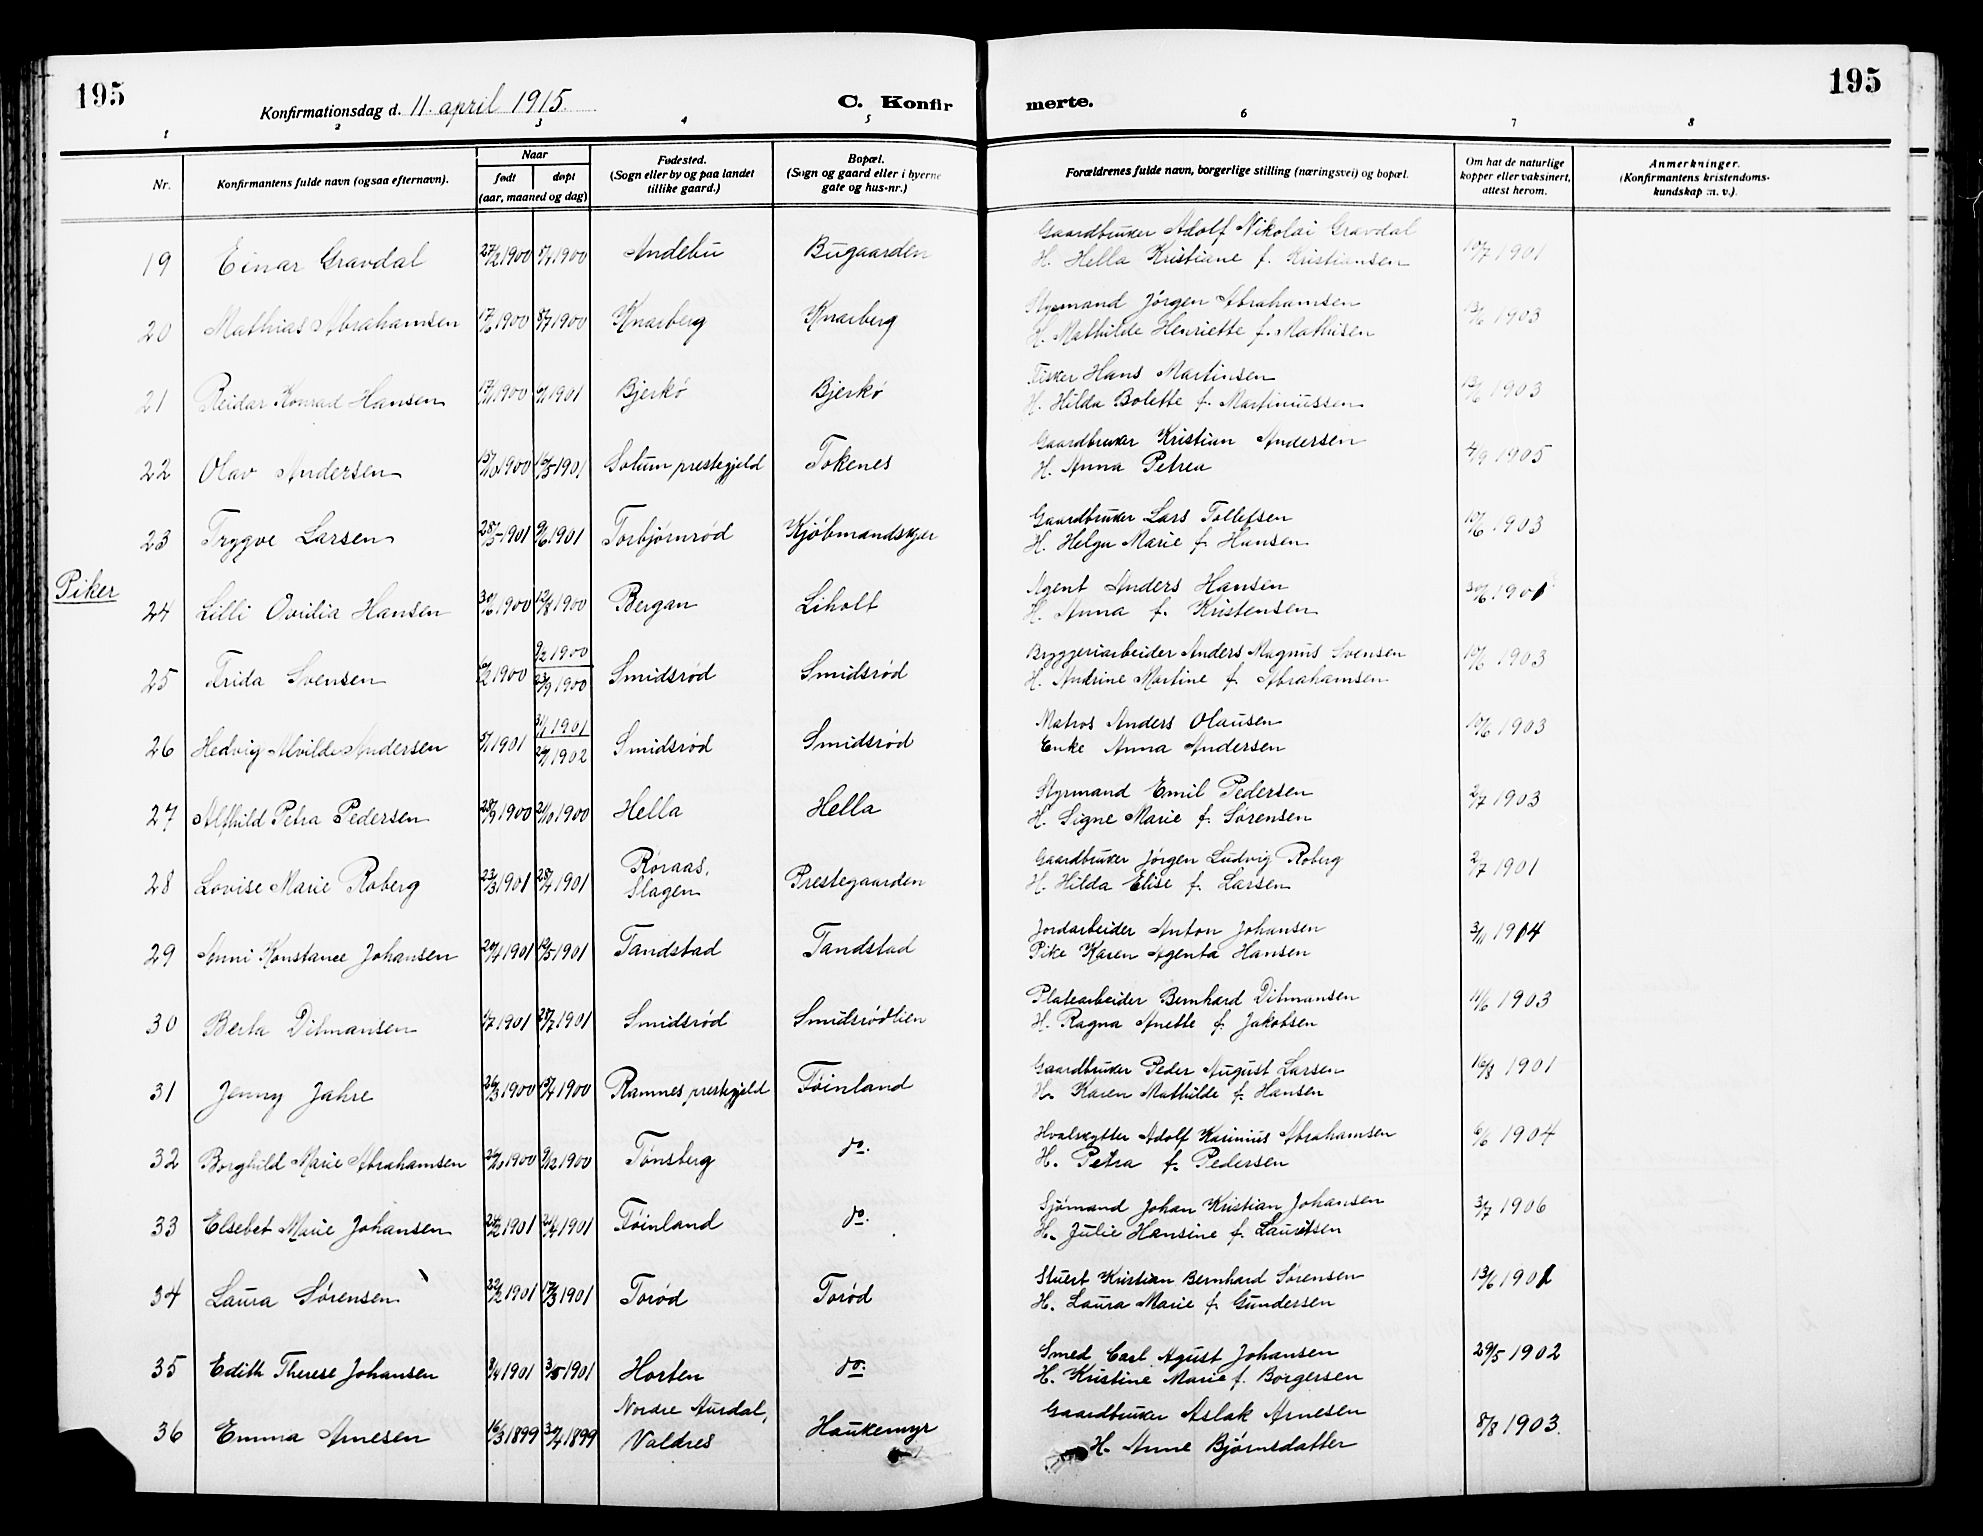 195
Konfirmationsdag d. 11. april 1915.
C. Konfir merte.
195
1 2 3 4 5 6 7 8
Nr.
Konfirmantens fulde navn (ogsaa efternavn).
Naar
født
døpt
(aar, maaned og dag)
Fødested.
(Sogn eller by og paa landet
tillike gaard.)
Bopæl.
(Sogn og gaard eller i byerne
gate og hus-nr.)
Forældrenes fulde navn, borgerlige stilling (næringsvei) og bopæl.
Om hat de naturlige
kopper eller vaksinert,
attest herom.
Anmerkninger.
(Konfirmantens kristendoms-
kundskap m. v.).
Gaardbruker Adolf Nikolai Gravdal
19 Einar Gravdal 27/2 1900 1900 Andebu Bugaarden 10/7 1901
H. Hella Kristiane f. Kristiansen
Styrmand Jörgen Abrahamsen
20 Mathias Abrahamsen 17/6 1900 8/7 1900 Knarberg Knarberg 13/6 1903
H. Mathilde Henriette f. Mathisen
Fisker Hans Martinsen
21 Reidar Konrad Hansen 1900 1901 Bjerkö Bjerkö 13/6 1903
H. Hilda Bolette f. Martiniussen
Gaardbruker Kristian Andersen
22 Olav Andersen 15/10 1900 16/5 1901 Sotum prestegjeld Tokenes 4/9 1905
H. Anna Petrea
Gaardbruker Lars Tollefsen
23 Trygve Larsen 28/5 1901 9/6 1901 Torbjørnrød Kjøbmandskjer 10/6 1903
H. Helga Marie f. Hansen
Piker
Agent Anders Hansen
24 Lilli Ovidia Hansen 30/6 1900 12/8 1900 Bergan Liholt 30/6 1901
H. Anna f. Kristensen
9/2 1900
Bryggeriarbeider Anders Magnus Svensen
25 Frida Svensen 1900 23/9 1900 Smidsrød Smidsrød 10/6 1903
H. Andrine Martine f. Abrahamsen
1901
Matros Anders Olausen
26 Hedvig Alvilde Andersen 1901 1902 Smidsrød Smidsrød 10/6 1903
Enke Anna Andersen
Styrmand Emil Pedersen
27 Alfhild Petra Pedersen 28/9 1900 21/10 1900 Hella Hella 2/7 1903
H. Signe Marie f. Sørensen
Gaardbruker Jørgen Ludvig Roberg
28 Lovise Marie Roberg 23/3 1901 28/4 1901 Røraas, Slagen Prestegaarden 2/7 1901
H. Hilda Elise f. Larsen
Jordarbeider Anton Johansen
29 Anni Konstance Johansen 20/4 1901 12/5 1901 Tandstad Tandstad 3/11 1914
Pike Karen Agenta Hansen
Platearbeider Bernhard Ditmansen
30 Berta Ditmansen 1/7 1901 28/7 1901 Smidsrød Smidsrødlien 11/6 1903
H. Ragna Anette f. Jakobsen
Gaardbruker Peder August Larsen
31 Jenny Jahre 26/3 1900 15/4 1900 Ramnes prestegjeld Føinland 16/8 1901
H. Karen Mathilde f. Hansen
Hvalskytter Adolf Karinius Abrahamsen
32 Borghild Marie Abrahamsen 26/10 1900 9/12 1900 Tønsberg do. 6/6 1904
H. Petra f. Pedersen
Sjømand Johan Kristian Johansen
33 Elsebet Marie Johansen 24/2 1901 21/4 1901 Føinland do. 3/7 1906
H. Julie Hansine f. Lauritsen
Stuert Kristian Bernhard Sørensen
34 Laura Sørensen 22/2 1901 17/3 1901 Torød Torød 13/6 1901
H. Laura Marie f. Gundersen
Smed Carl Agust Johansen
35 Edith Therese Johansen 8/4 1901 3/5 1901 Horten do. 29/5 1902
H. Kristine Marie f. Borgersen
Nordre Aurdal,
Gaardbruker Aslak Arnesen
36 Emma Arnesen 16/3 1899 30/4 1899 Valdres Haukemyr 8/8 1903.
H. Anne Bjørnsdatter